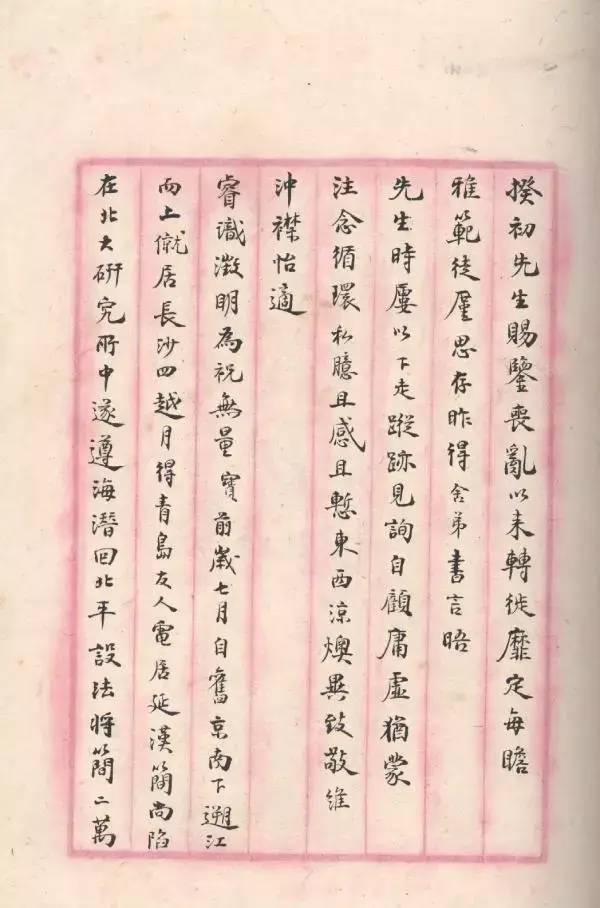 揆初先生賜鑒喪亂以来轉徙靡定每瞻
雅範徒廑思存昨得舍弟書言晤
先生時屢以下走蹤跡見詢自顧庸虛猶蒙
注念循環私臆且感且慙東西涼燠異致敬維
沖襟怡適
睿識澂明為祝無量寶前歲七月自舊京南下遡江
而上僦居長沙四越月得青島友人電居延漢簡尚陷
在北大研究所中遂遵海潛回北平設法将簡二萬